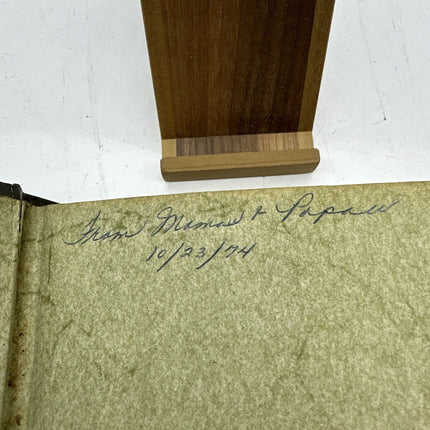 From Mamas & Papaw
10/23/74